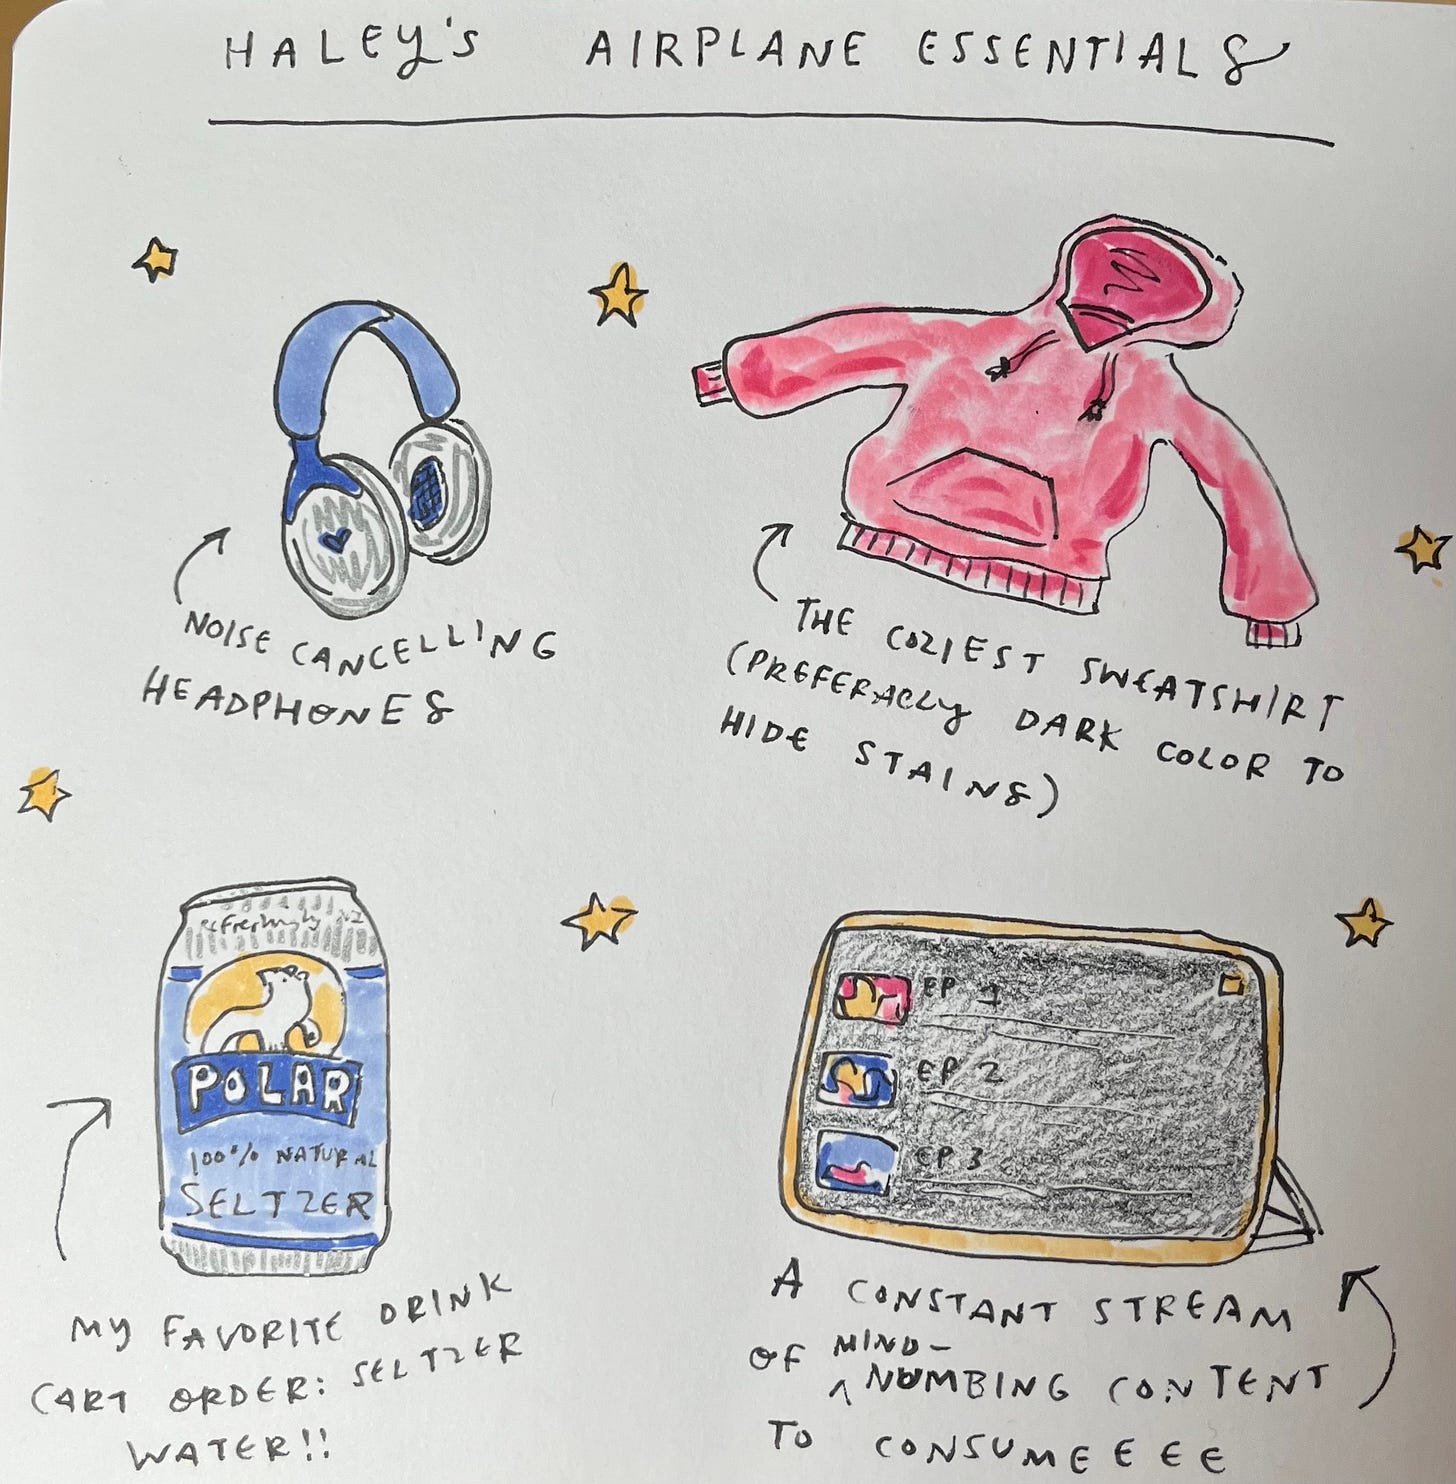 HALEY'S AIRPLANE ESSENTIALS
NOISE CANCELLING
HEADPHONES
THE COZIEST SWEATSHIRT
(PREFERABLY DARK COLOR TO
HIDE STAINS)
refreshingly
POLAR
100% NATURAL
SELTZER
MY FAVORITE DRINK
CART ORDER: SELTZER
WATER!!
EP 1
EP 2
EP 3
A CONSTANT STREAM
OF MIND-
NUMBING CONTENT
TO CONSUMEEEE